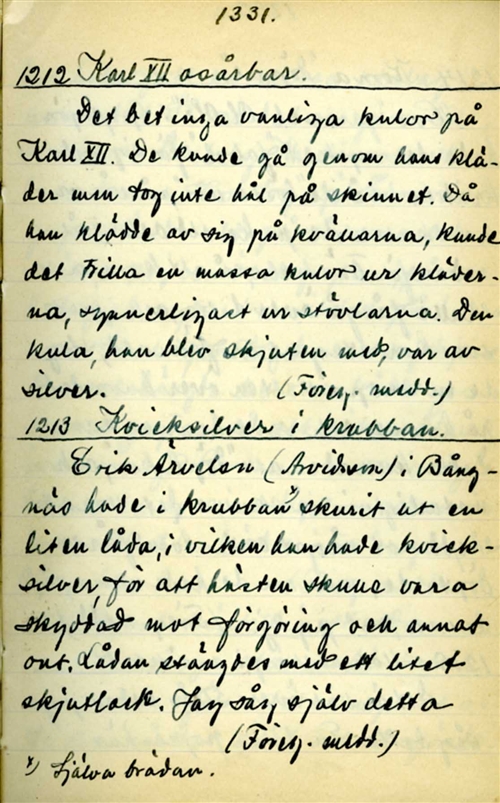 1331.
1212 Karl XII osårbar.
Det bet inga vanliga kulor på
Karl XII. De kunde gå genom hans klä-
der men tog inte hål på skinnet. Då
han klädde av sig på kvällarna, kunde
det trilla en massa kulor ur kläder-
na, synnerligast ur stövlarna. Den
kula, han blev skjuten med, var av
silver. (Föreg. medd.)
1213 Kvicksilver i krubban.
Erik Arvelsn (Arvidsson) i Bång-
näs hade i krubban x) skurit ut en
liten låda, i vilken han hade kvick-
silver, för att hästen skulle vara
skyddad mot förgöring och annat
ont. Lådan stängdes med ett litet
skjutlock. Jag såg själv detta
(Föreg. medd.)
x) Själva brädan.